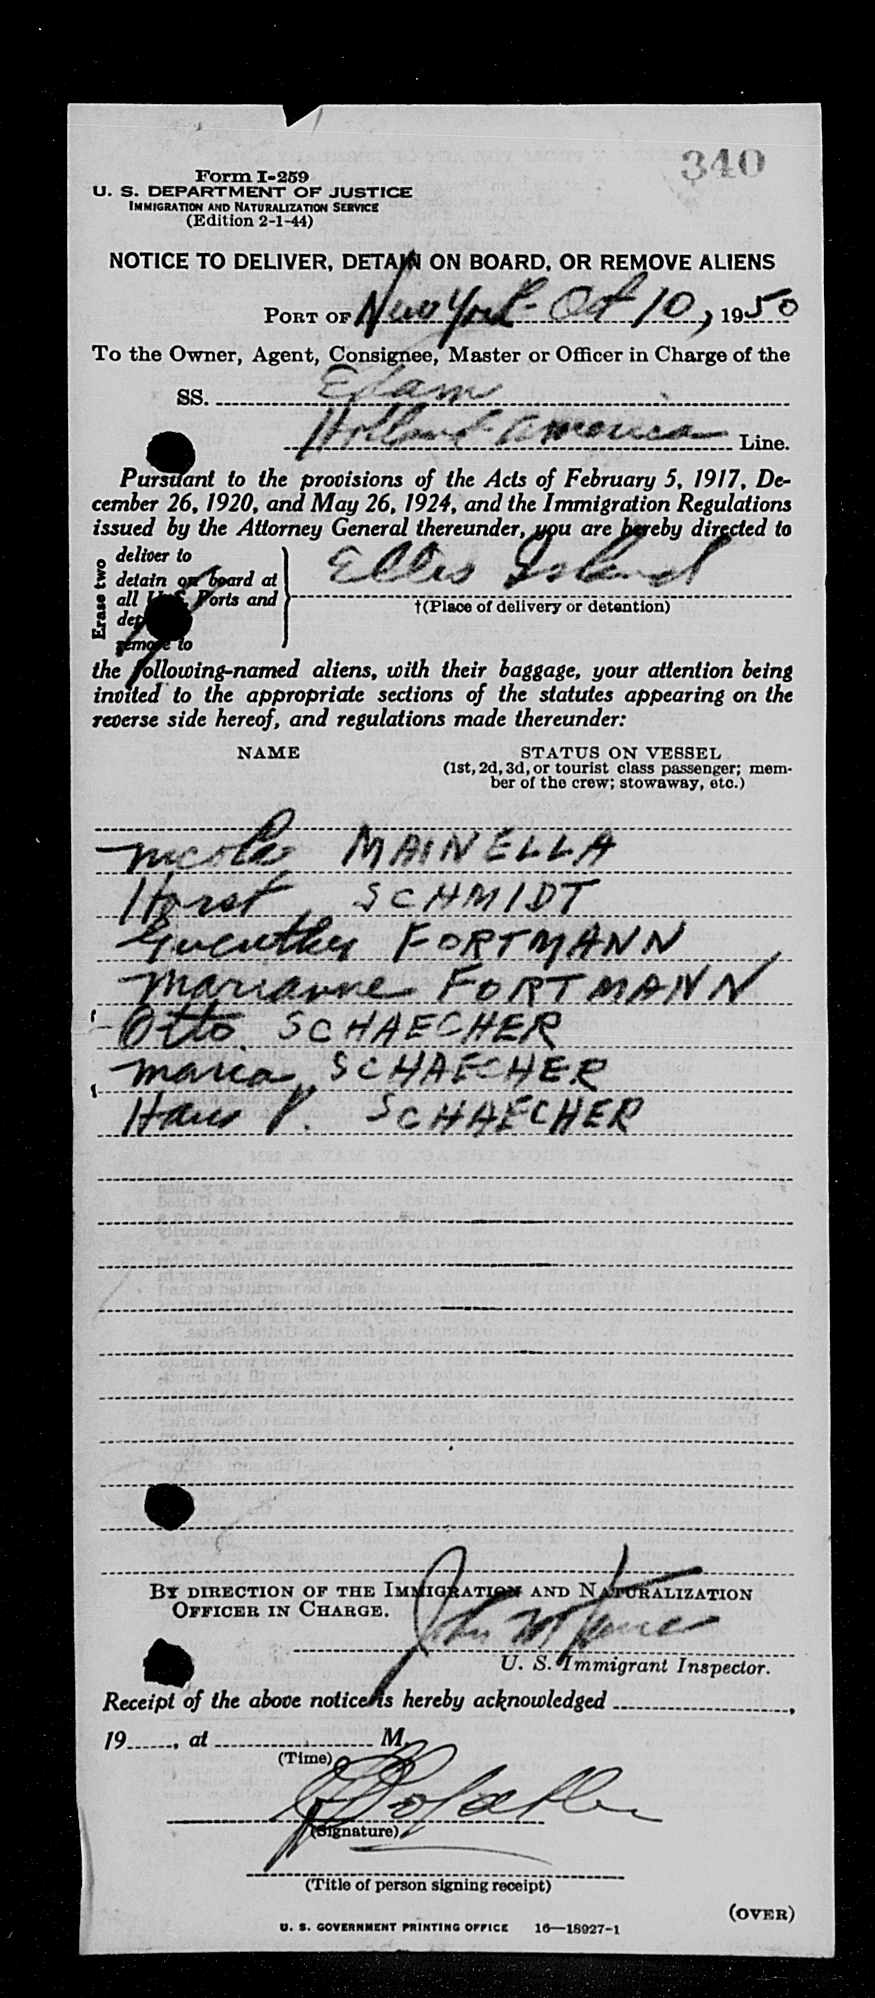 340
Form I-259
U. S. DEPARTMENT OF JUSTICE
IMMIGRATION AND NATURALIZATION SERVICE
(Edition 2-1-44)
NOTICE TO DELIVER, DETAIN ON BOARD, OR REMOVE ALIENS
PORT OF New York Oct 10, 1950
To the Owner, Agent, Consignee, Master or Officer in Charge of the
SS. Edam
Holland-America Line.
Pursuant to the provisions of the Acts of February 5, 1917, De-
cember 26, 1920, and May 26, 1924, and the Immigration Regulations
issued by the Attorney General thereunder, you are hereby directed to
Erase two
deliver to
detain on board at
all U.S. Ports and
remove to
Ellis Island
†(Place of delivery or detention)
the following-named aliens, with their baggage, your attention being
invited to the appropriate sections of the statutes appearing on the
reverse side hereof, and regulations made thereunder:
NAME STATUS ON VESSEL
(1st, 2d, 3d, or tourist class passenger; mem-
ber of the crew; stowaway, etc.)
Nicola MAINELLA
Horst SCHMIDT
Guenther FORTMANN
Marianne FORTMANN
Otto SCHAECHER
Maria SCHAECHER
Hans P. SCHAECHER
BY DIRECTION OF THE IMMIGRATION AND NATURALIZATION
OFFICER IN CHARGE.
John
U. S. Immigrant Inspector.
Receipt of the above notice is hereby acknowledged ,
19 , at M.
(Time)
(Signature)
(Title of person signing receipt)
(OVER)
U. S. GOVERNMENT PRINTING OFFICE 16—18927-1